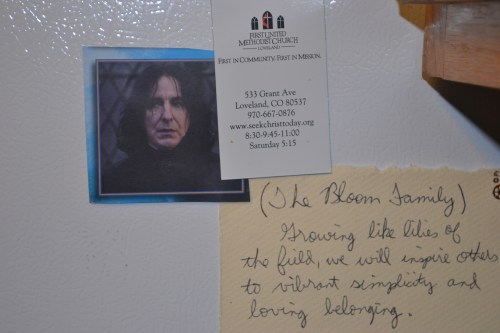 FIRST UNITED
METHODIST CHURCH
LOVELAND
FIRST IN COMMUNITY. FIRST IN MISSION.
533 Grant Ave
Loveland, CO 80537
970-667-0876
www.seekchristtoday.org
8:30-9:45-11:00
Saturday 5:15
(The Bloom Family)
Growing like lilies of
the field, we will inspire others
to vibrant simplicity and
loving belonging.